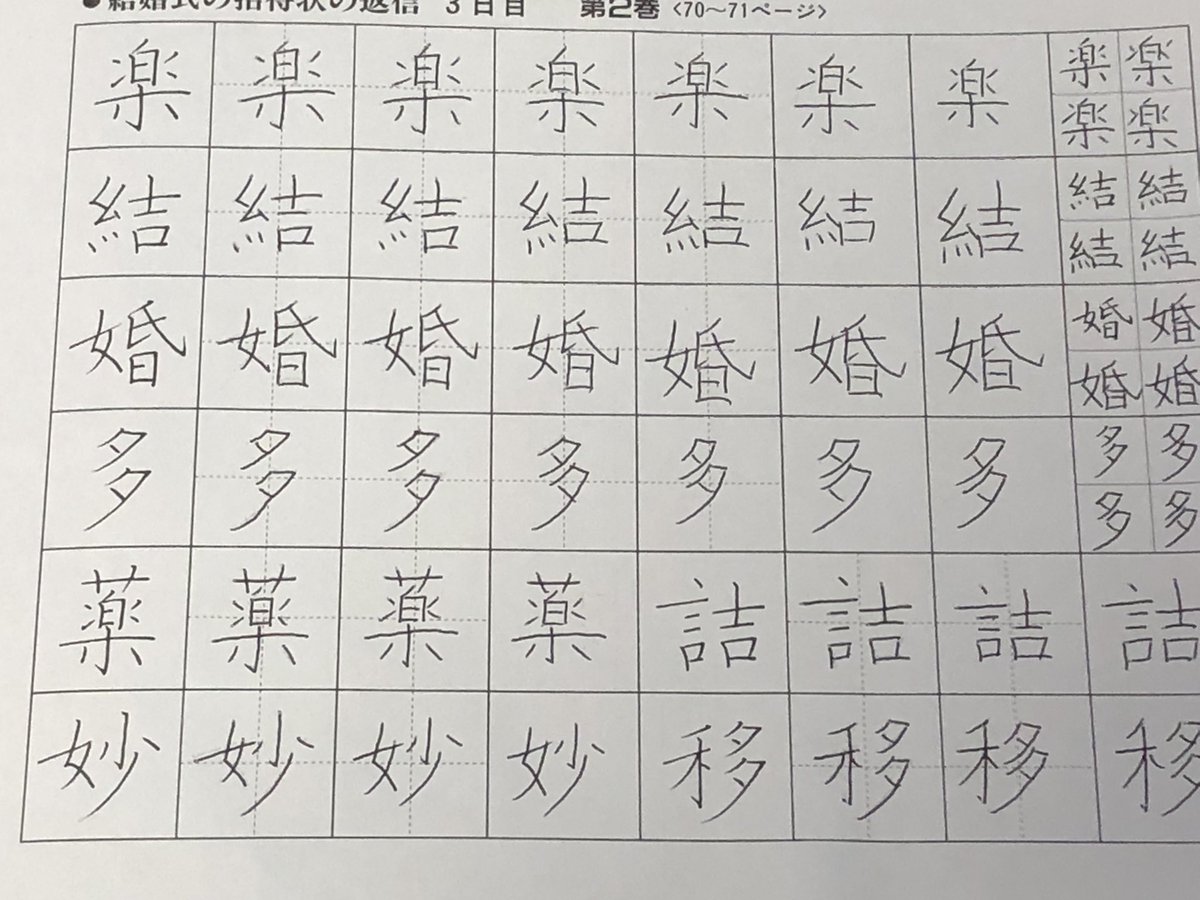 ●結婚式の招待状の返信 3日目 第2巻〈70〜71ページ〉
楽 楽 楽 楽 楽 楽 楽 楽 楽
楽 楽
結 結 結 結 結 結 結 結 結
結 結
婚 婚 婚 婚 婚 婚 婚 婚 婚
婚 婚
多 多 多 多 多 多 多 多 多
多 多
薬 薬 薬 薬 詰 詰 詰 詰
妙 妙 妙 妙 移 移 移 移